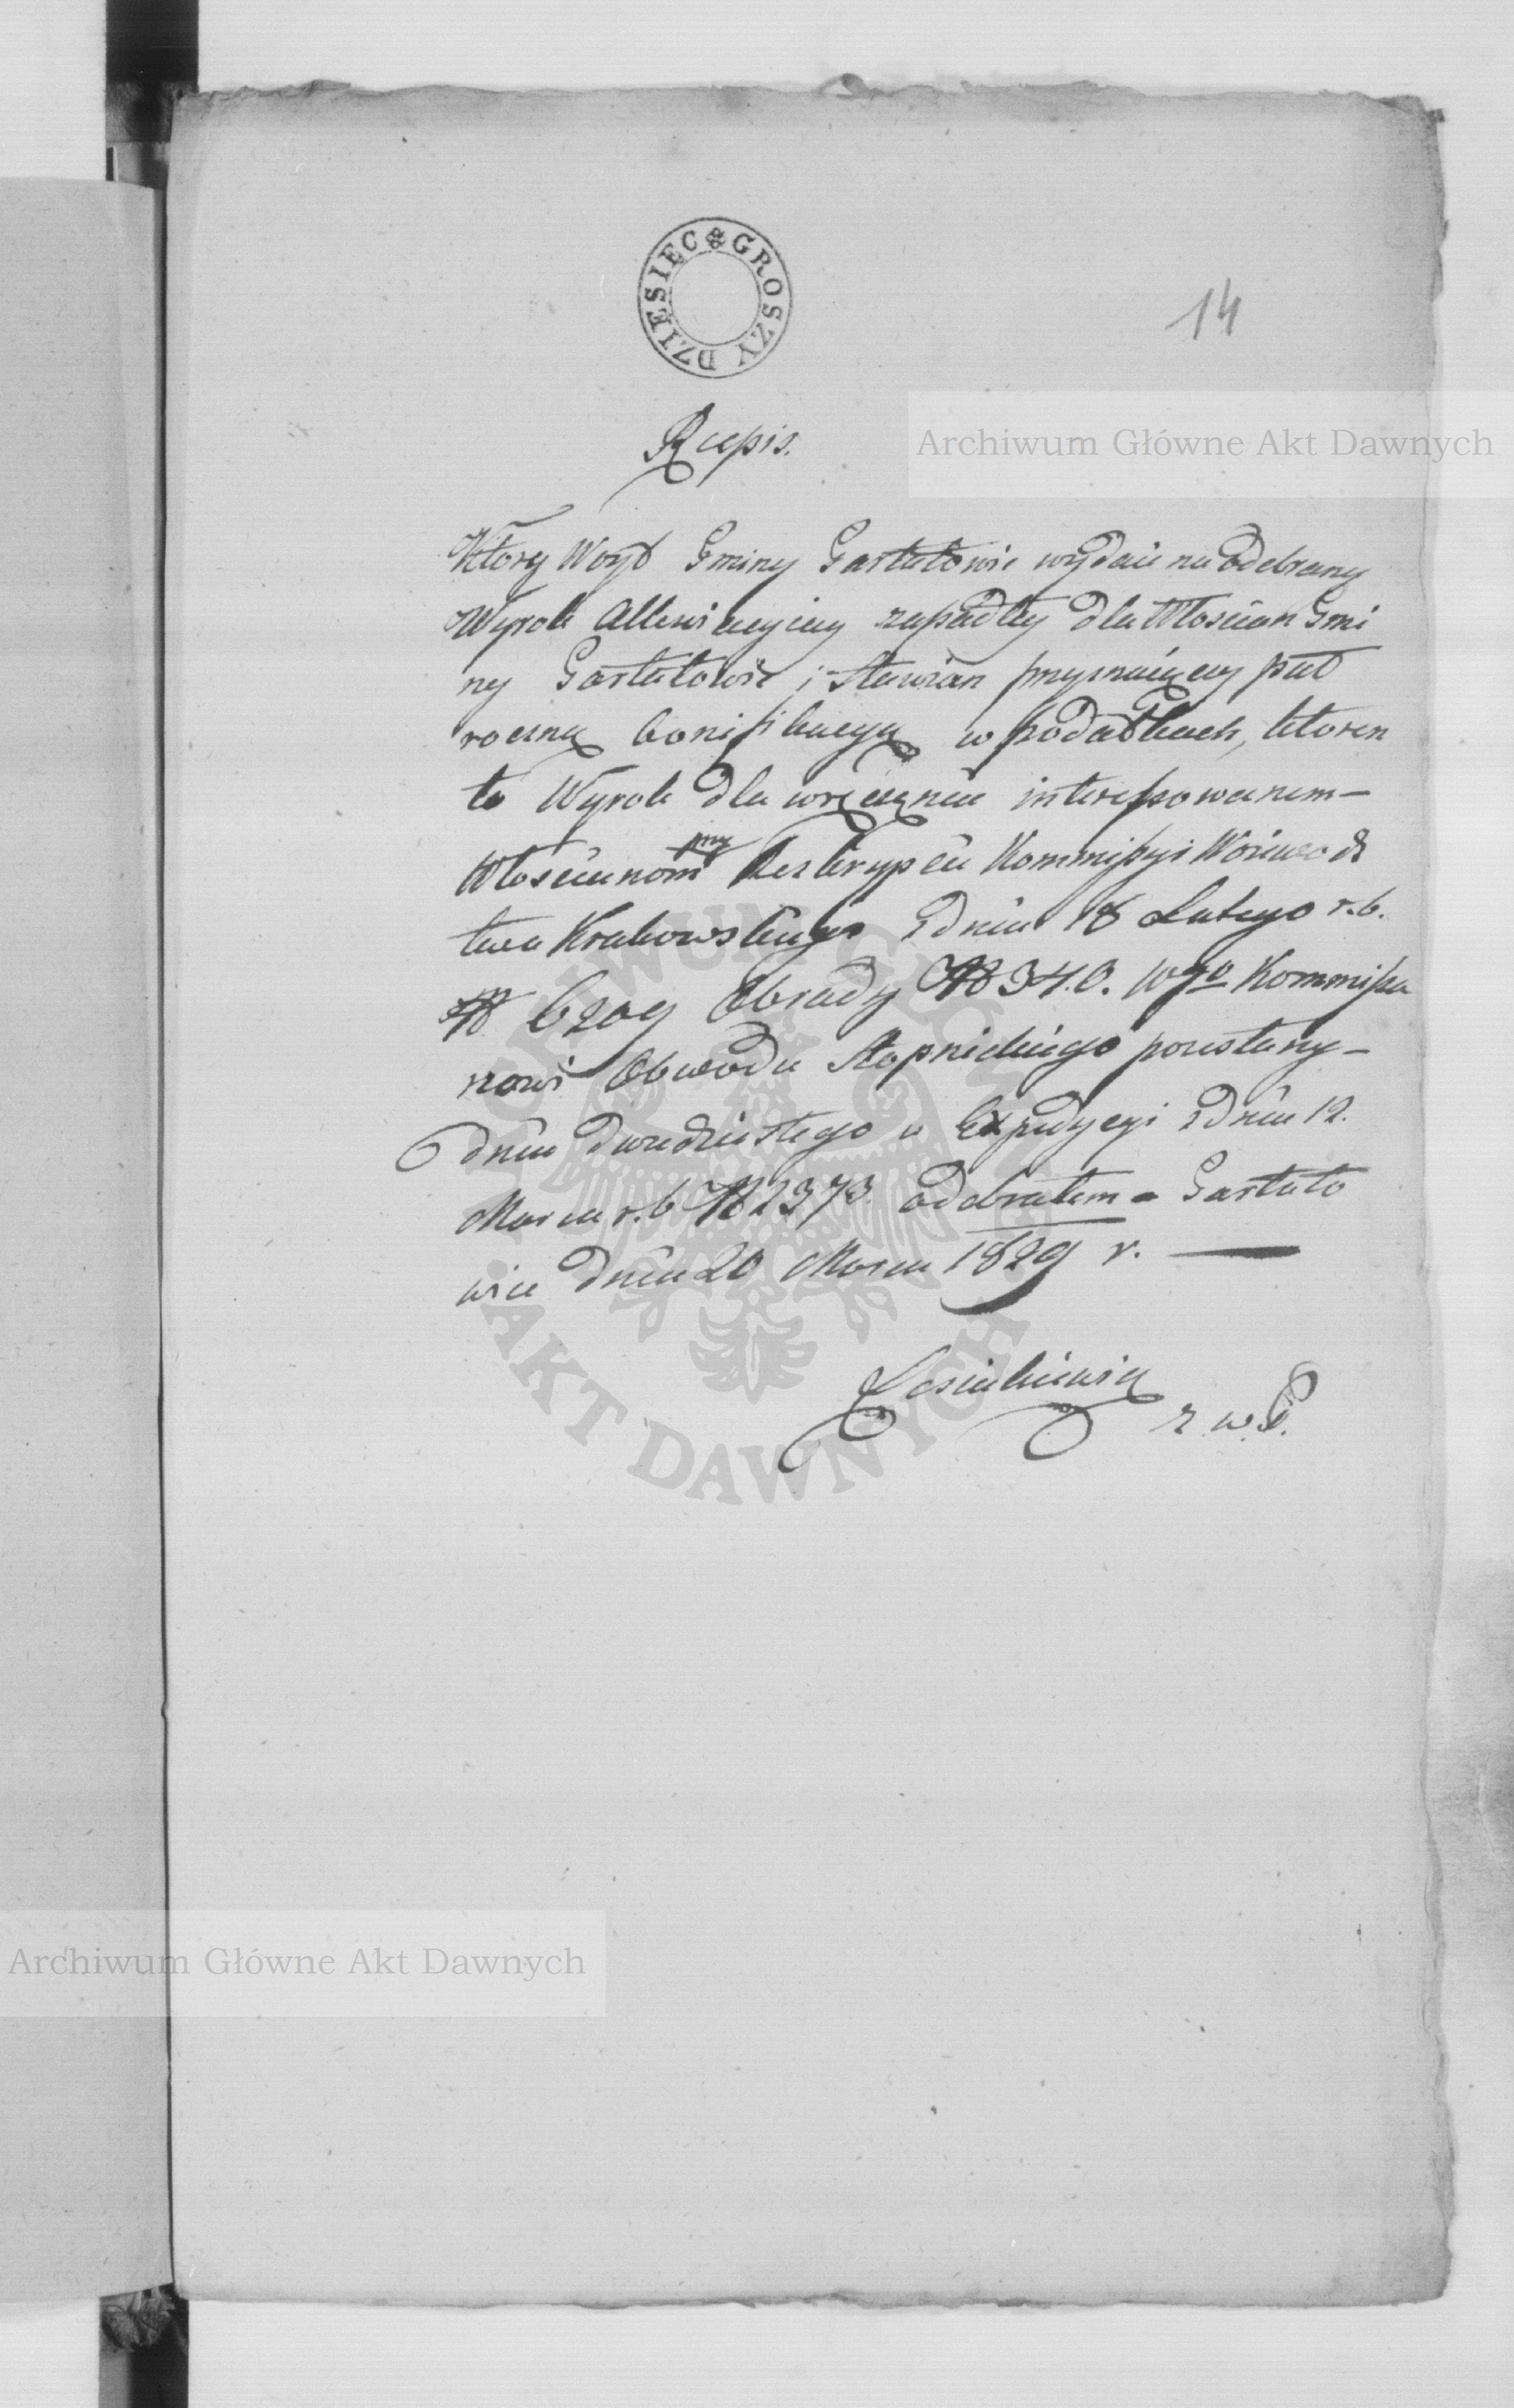 DZIESIĘC GROSZY
14
Archiwum Główne Akt Dawnych
Rcepis.
Ktory Woyt Gminy Gartatowic wydaie na odebrany
Wyrok Allewiacyiny zapadły dla Włoscian Gmi
ny Gartatowic i Stawian przyznaiący puł
roczną bonifikacyą w podatkach, ktoren
to Wyrok dla wręczenia interessowanem
Włoscianom przy Reskrypcie Kommissyi Woiewodz
twa Krakowskiego z dnia 18 Lutego r. b.
N 6209 Obrady N 340. Wgo Kommissa
rzowi Obwodu Stopnickiego przesłany
dnia dwudziestego w Expedycyi z dnia 12.
Marca r. b N 2373. odebrałem - Gartato
wice dnia 20 Marca 1829 r.
z. w. G.
ARCHIWUM GŁÓWNE AKT DAWNYCH
Archiwum Główne Akt Dawnych